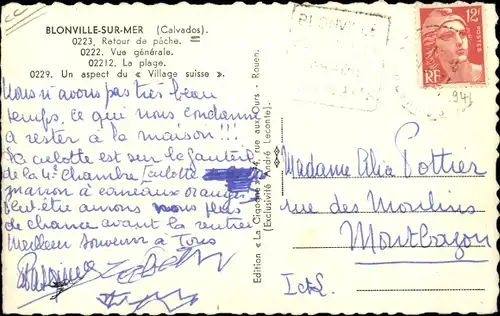 BLONVILLE-SUR-MER (Calvados).
0223. Retour de pêche.
0222. Vue générale.
02212. La plage.
0229. Un aspect du « Village suisse ».
Nous n'avons pas très beau
temps, ce qui nous condamne
a rester à la maison !!!
La culotte est sur le fauteuil
de la 4e chambre culotte
marron à carreaux oranges
Peut-être aurons nous plus
de chance avant la rentrée
Meilleur souvenir à Tous
Edition « La Cigogne » rue aux Ours - Rouen.
(Exclusivité André Leconte).
BLONVILLE
12F
POSTES
RF
Madame Pottier
rue des Moulins
I et L